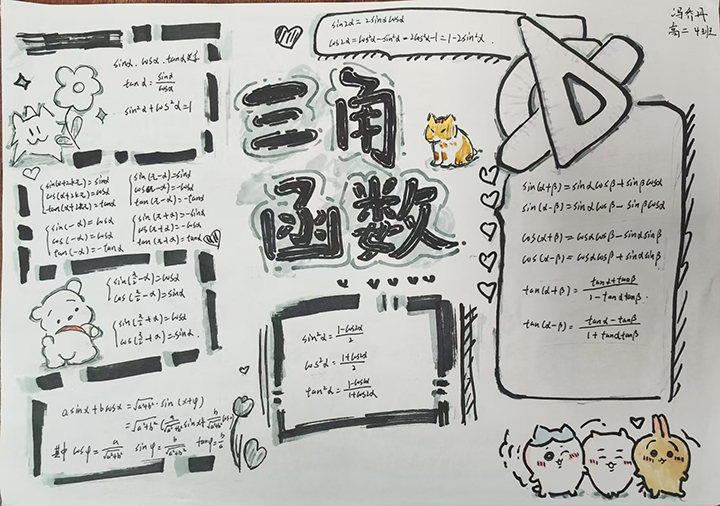 冯乔丹
高二 4班
sin2α = 2sinαcosα
cos2α = cos²α - sin²α = 2cos²α - 1 = 1 - 2sin²α.
三角
函数
sinα . cosα . tanα
tanα = sinα/cosα
sin²α + cos²α = 1
sin(α+2kπ) = sinα
cos(α+2kπ) = cosα
tan(α+2kπ) = tanα
sin(π-α) = sinα
cos(π-α) = -cosα
tan(π-α) = -tanα
cos(-α) = cosα
tan(-α) = -tanα
sin(π+α) = -sinα
cos(π+α) = -cosα
tan(π+α) = tanα
sin(π/2-α) = cosα
cos(π/2-α) = sinα
sin(π/2+α) = cosα
cos(π/2+α) = -sinα.
asinx + bcosx = √a²+b² · sin(x+φ)
= √a²+b² (a/√a²+b² sinx + b/√a²+b² cosx)
其中 cosφ = a/√a²+b² sinφ = b/√a²+b² tanφ = b/a
sin²α = 1-cos2α/2
cos²α = 1+cos2α/2
tan²α = 1-cos2α/1+cos2α
sin(α+β) = sinαcosβ + sinβcosα
sin(α-β) = sinαcosβ - sinβcosα
cos(α+β) = cosαcosβ - sinαsinβ
cos(α-β) = cosαcosβ + sinαsinβ
tan(α+β) = tanα+tanβ/1-tanαtanβ.
tan(α-β) = tanα-tanβ/1+tanαtanβ